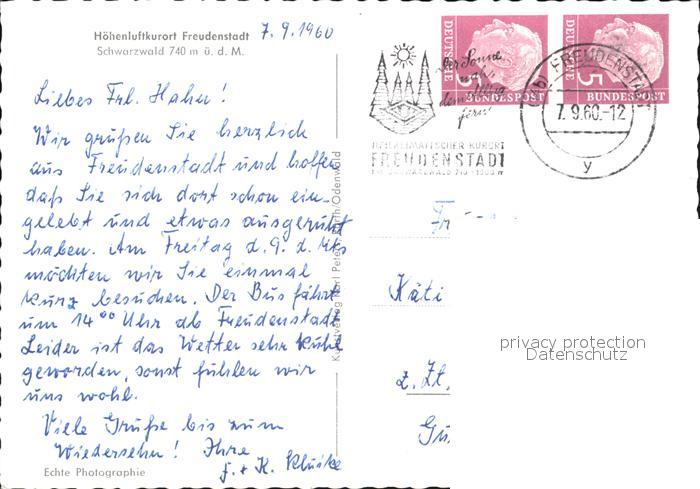 Höhenluftkurort Freudenstadt
Schwarzwald 740 m ü. d. M.
7.9.1960
Liebes Frl. Hahn!
Wir grüßen Sie herzlich
aus Freudenstadt und hoffen
daß Sie sich dort schon ein-
gelebt und etwas ausgeruht
haben. Am Freitag d. 9. d. Mts
möchten wir Sie einmal
kurz besuchen. Der Bus fährt
um 14⁰⁰ Uhr ab Freudenstadt
Leider ist das Wetter sehr kühl
geworden, sonst fühlen wir
uns wohl.
Viele Grüße bis zum
Wiedersehn! Ihre
Echte Photographie
Kunstverlag Karl
/Odenwald
DEUTSCHE
5
BUNDESPOST
5
BUNDESPOST
der Sonne
nah,
dem Alltag
fern!
HEILKLIMATISCHER KURORT
FREUDENSTADT
FREUDENSTADT
7.9.60.-12
y
Käti
z. Zt.
privacy protection
Datenschutz